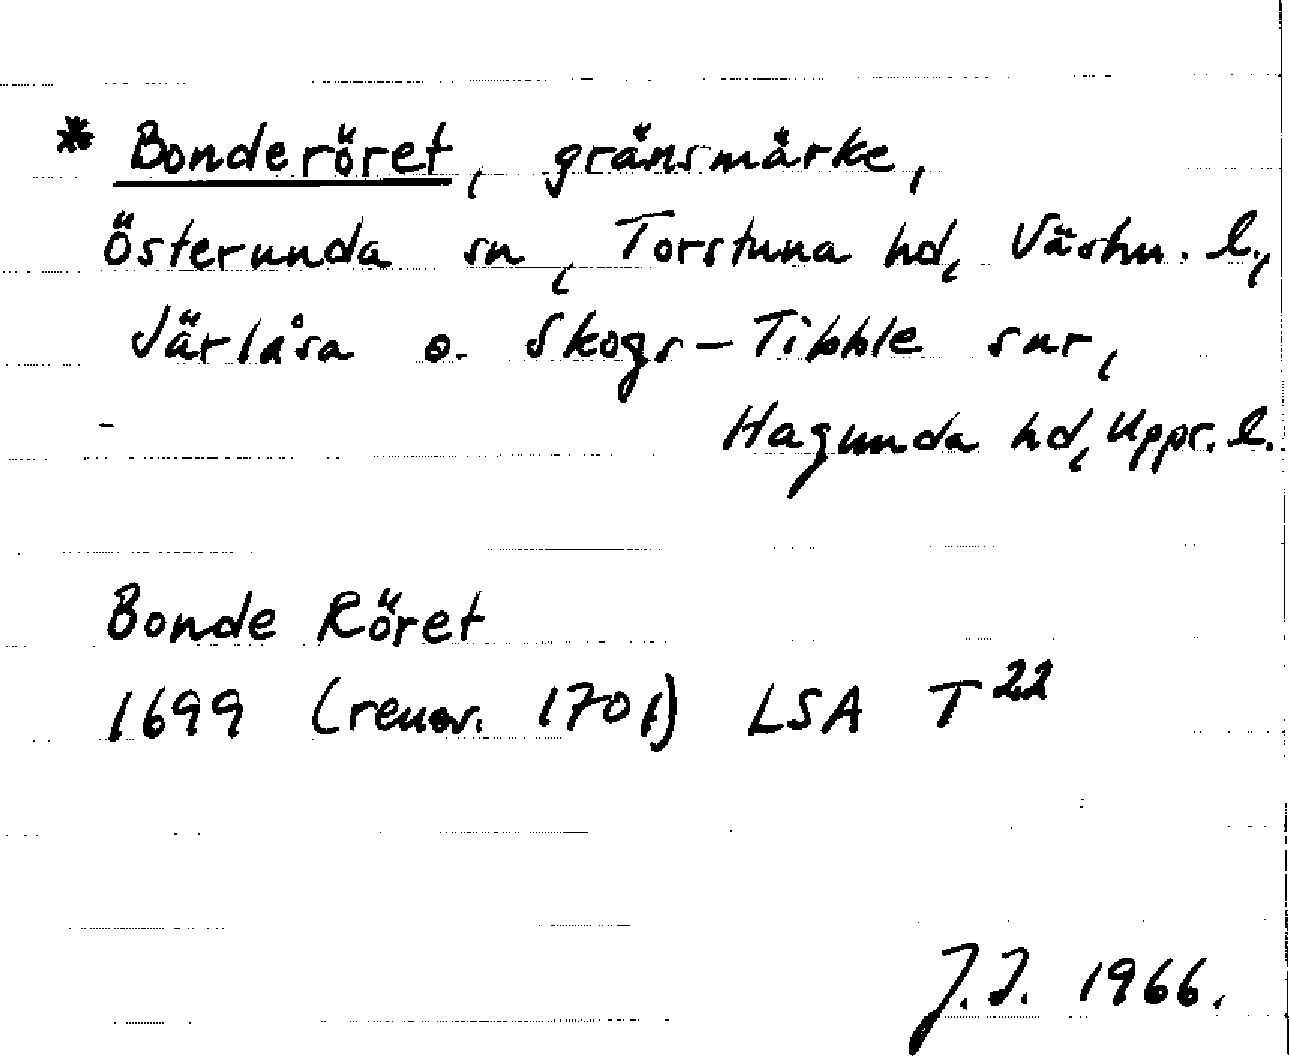 * Bonderöret, gränsmärke,
Österunda sn, Torstuna hd, Västm. l.,
Järlåsa o. Skogs-Tibble snr,
Hagunda hd, Upps. l.
Bonde Röret
1699 (renov. 1701) LSA T 22
J.J. 1966.